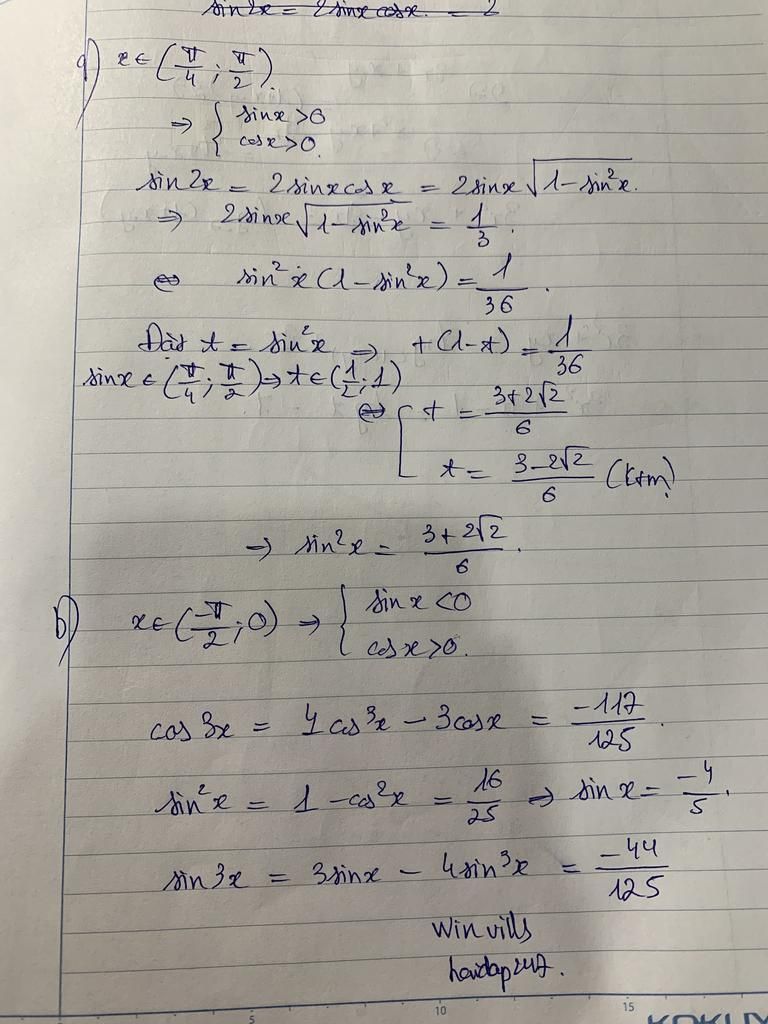 sin2x = 2sinx cosx. = 2
a) x ∈ (π/4 ; π/2).
⇒ { sinx > 0
cosx > 0.
sin2x = 2sinxcosx = 2sinx √(1 - sin²x).
⇒ 2sinx √(1 - sin²x) = 1/3.
⇔ sin²x (1 - sin²x) = 1/36.
Đặt t = sin²x ⇒ t(1-t) = 1/36
sinx ∈ (π/4 ; π/2) ⇒ t ∈ (1/2 ; 1)
⇔ [ t = (3+2√2)/6
t = (3-2√2)/6 (ktm)
⇒ sin²x = (3+2√2)/6.
b) x ∈ (-π/2 ; 0) ⇒ { sinx < 0
cosx > 0.
cos3x = 4cos³x - 3cosx = -117/125.
sin²x = 1 - cos²x = 16/25 ⇒ sinx = -4/5.
sin3x = 3sinx - 4sin³x = -44/125
Winvills
hoidap247.
5 10 15
KOKUY